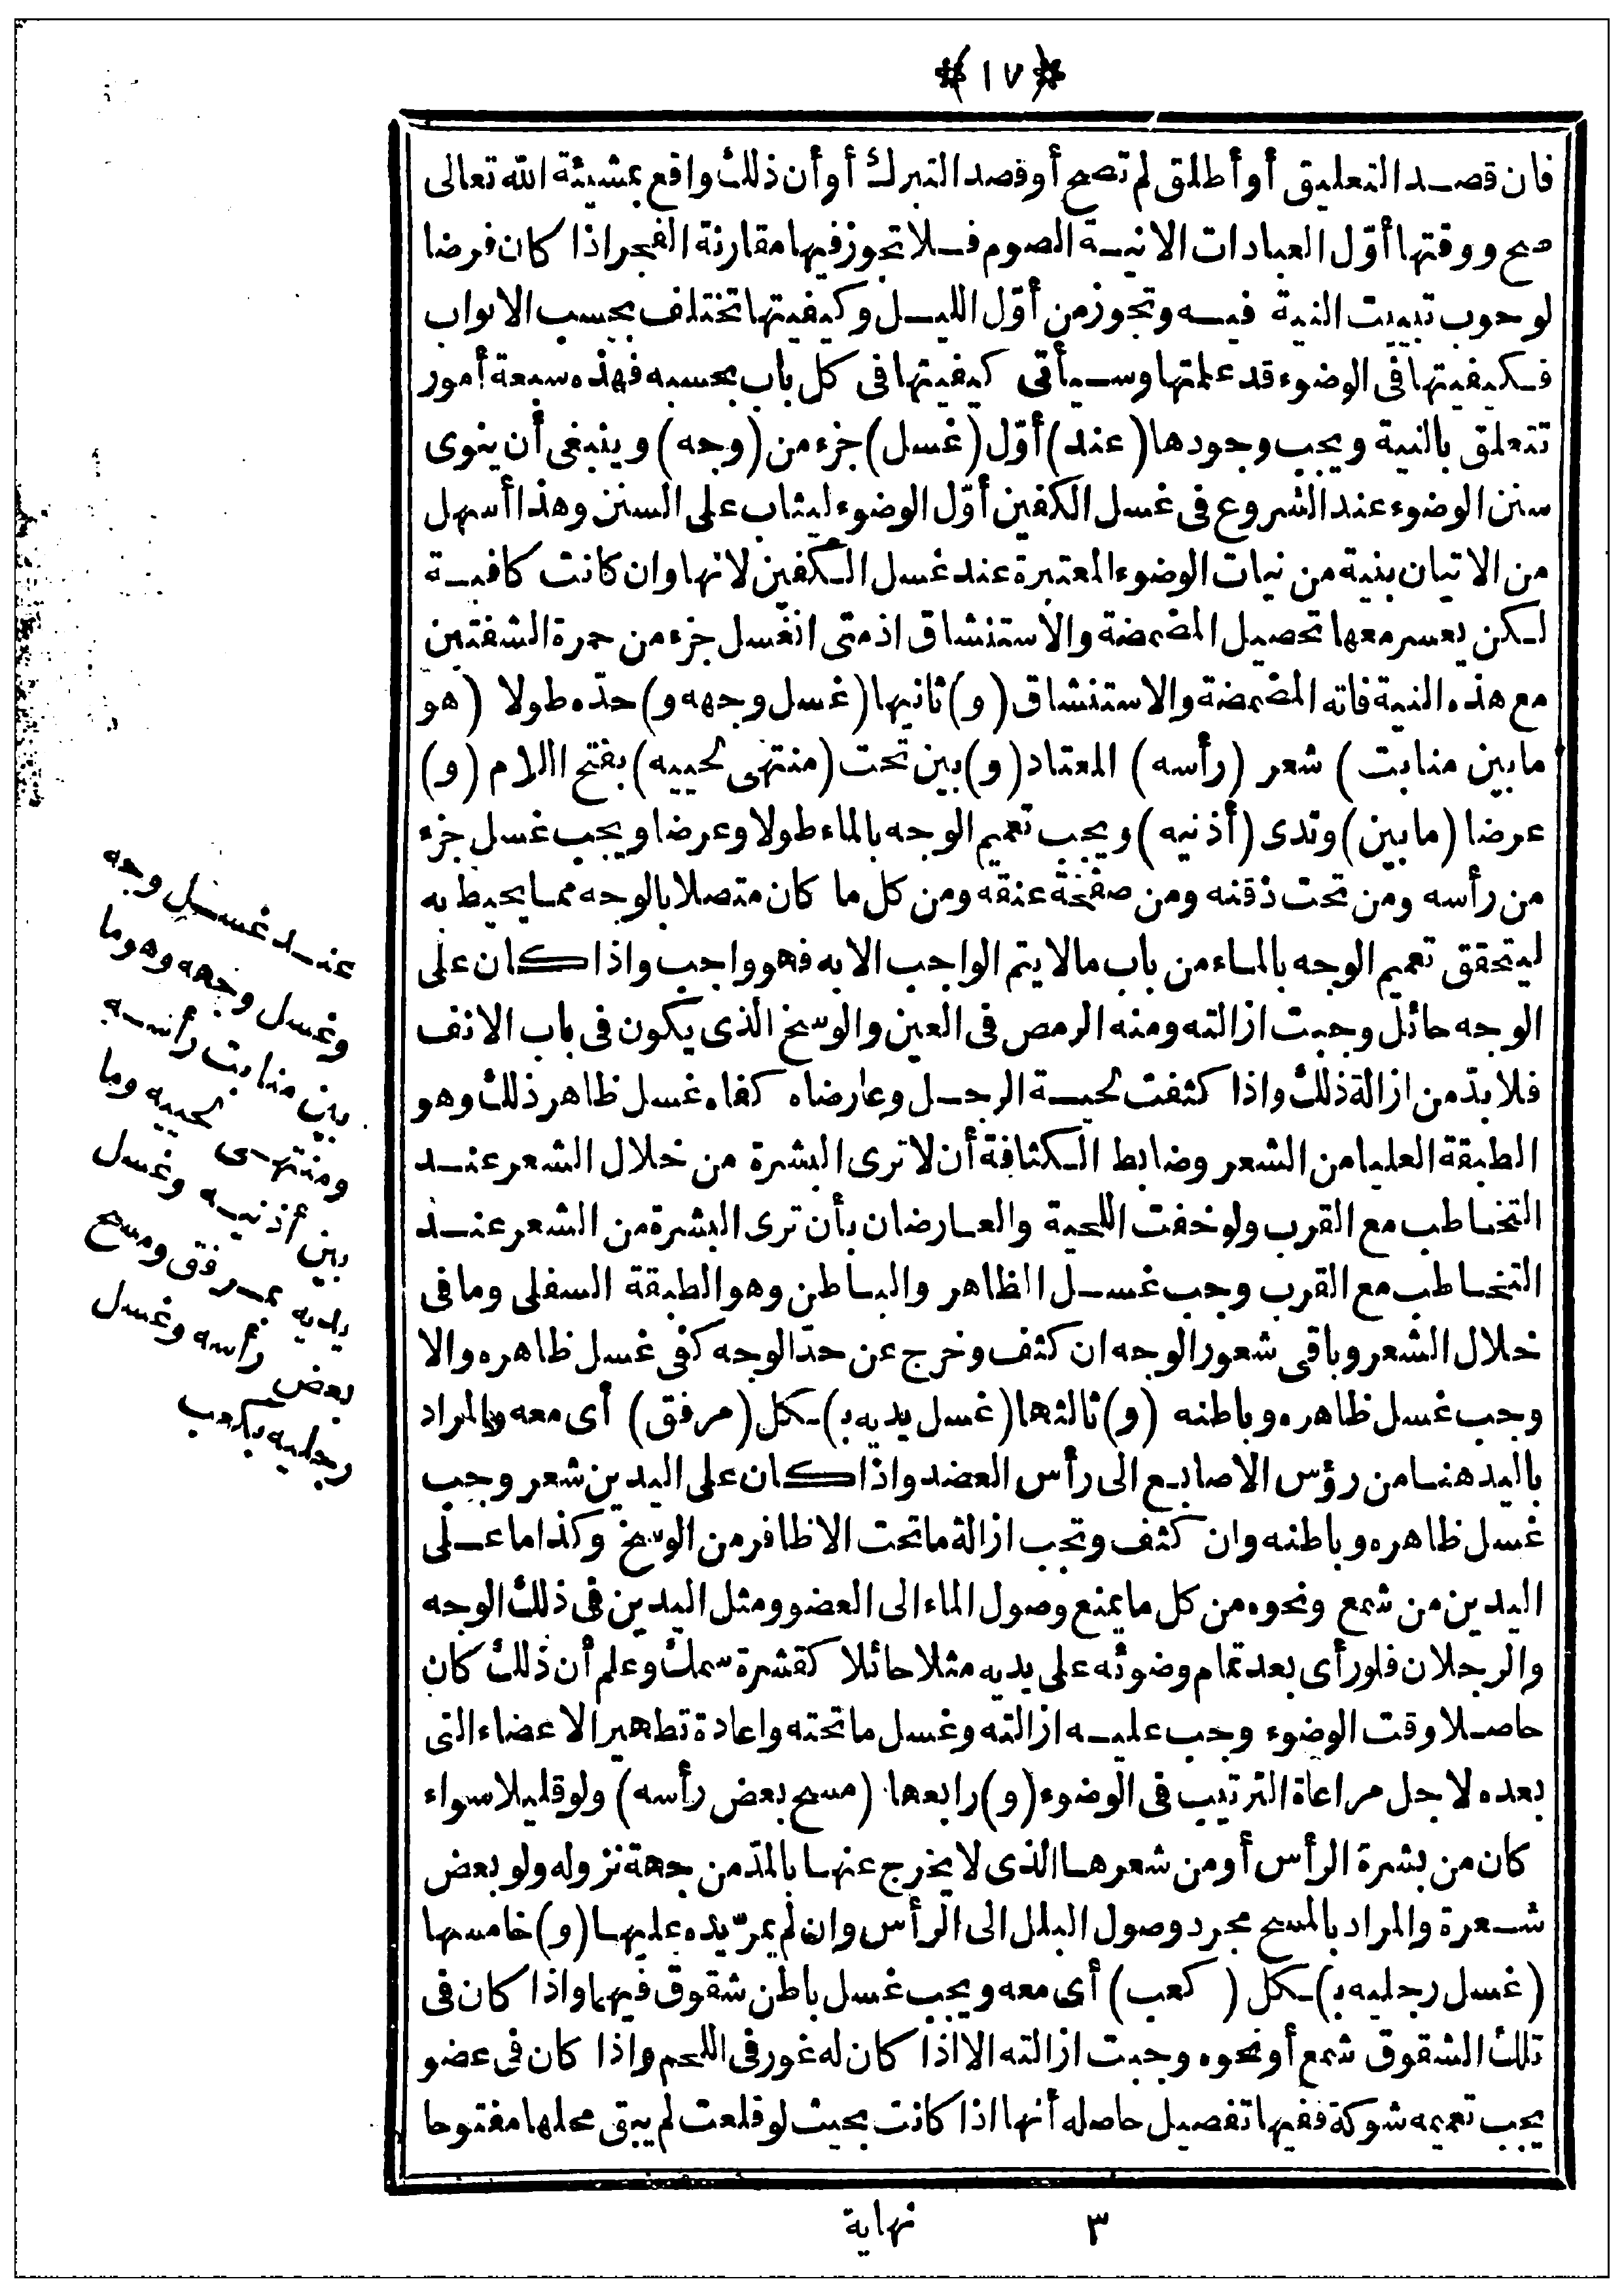 ﴿١٧﴾
فان قصد التعليق أو أطلق لم تصح أو قصد التبرك أو أن ذلك واقع بمشيئة الله تعالى
صح ووقتها أوّل العبادات الا نية الصوم فلا تجوز فيها مقارنة الفجر اذا كان فرضا
لوجوب تبييت النية فيه وتجوز من أوّل الليل وكيفيتها تختلف بحسب الابواب
فكيفيتها فى الوضوء قد علمتها وسيأتى كيفيتها فى كل باب بحسبه فهذه سبعة أمور
تتعلق بالنية ويجب وجودها (عند) أوّل (غسل) جزء من (وجه) وينبغى أن ينوى
سنن الوضوء عند الشروع فى غسل الكفين أوّل الوضوء ليثاب على السنن وهذا أسهل
من الاتيان بنية من نيات الوضوء المعتبرة عند غسل الكفين لانها وان كانت كافية
لكن يعسر معها تحصيل المضمضة والاستنشاق اذ متى انغسل جزء من حمرة الشفتين
مع هذه النية فاته المضمضة والاستنشاق (و) ثانيها (غسل وجهه و) حدّه طولا (هو
ما بين منابت) شعر (رأسه) المعتاد (و) بين تحت (منتهى لحييه) بفتح اللام (و)
عرضا (ما بين) وتدى (أذنيه) ويجب تعميم الوجه بالماء طولا وعرضا ويجب غسل جزء
من رأسه ومن تحت ذقنه ومن صفحة عنقه ومن كل ما كان متصلا بالوجه مما يحيط به
ليتحقق تعميم الوجه بالماء من باب مالا يتم الواجب الا به فهو واجب واذا كان على
الوجه حائل وجبت ازالته ومنه الرمص فى العين والوسخ الذى يكون فى باب الانف
فلا بدّ من ازالة ذلك واذا كثفت لحية الرجل وعارضاه كفاه غسل ظاهر ذلك وهو
الطبقة العليا من الشعر وضابط الكثافة أن لا ترى البشرة من خلال الشعر عند
التخاطب مع القرب ولو خفت اللحية والعارضان بأن ترى البشرة من الشعر عند
التخاطب مع القرب وجب غسل الظاهر والباطن وهو الطبقة السفلى وما فى
خلال الشعر وباقى شعور الوجه ان كثف وخرج عن حد الوجه كفى غسل ظاهره والا
وجب غسل ظاهره وباطنه (و) ثالثها (غسل يديه بـ) كل (مرفق) أى معه والمراد
باليد هنا من رؤس الاصابع الى رأس العضد واذا كان على اليدين شعر وجب
غسل ظاهره وباطنه وان كثف وتجب ازالة ما تحت الاظافر من الوسخ وكذا ما على
اليدين من شمع ونحوه من كل ما يمنع وصول الماء الى العضو ومثل اليدين فى ذلك الوجه
والرجلان فلو رأى بعد تمام وضوئه على يديه مثلا حائلا كقشرة سمك وعلم أن ذلك كان
حاصلا وقت الوضوء وجب عليه ازالته وغسل ما تحته واعادة تطهير الاعضاء التى
بعده لاجل مراعاة الترتيب فى الوضوء (و) رابعها (مسح بعض رأسه) ولو قليلا سواء
كان من بشرة الرأس أو من شعرها الذى لا يخرج عنها بالمدّ من جهة نزوله ولو بعض
شعرة والمراد بالمسح مجرد وصول البلل الى الرأس وان لم يمرّ يده عليها (و) خامسها
(غسل رجليه بـ) كل (كعب) أى معه ويجب غسل باطن شقوق فيهما واذا كان فى
تلك الشقوق شمع أو نحوه وجبت ازالته الا اذا كان له غور فى اللحم واذا كان فى عضو
يجب تعميمه شوكة ففيها تفصيل حاصله أنها اذا كانت بحيث لو قلعت لم يبق محلها مفتوحا
٣ نهاية
عند غسل وجه
وغسل وجهه وهو ما
بين منابت رأسه
ومنتهى لحييه وما
بين أذنيه وغسل
يديه بمرفق ومسح
بعض رأسه وغسل
رجليه بكعب